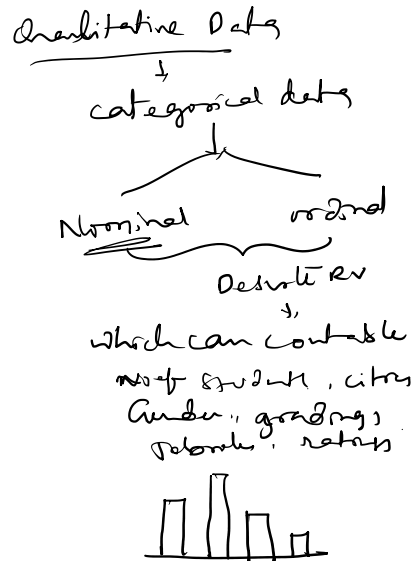 Qualitative Data
categorical data
Nominal ordinal
Descrete RV
which can countable
no of students, cities
Gender, gradings
ratings